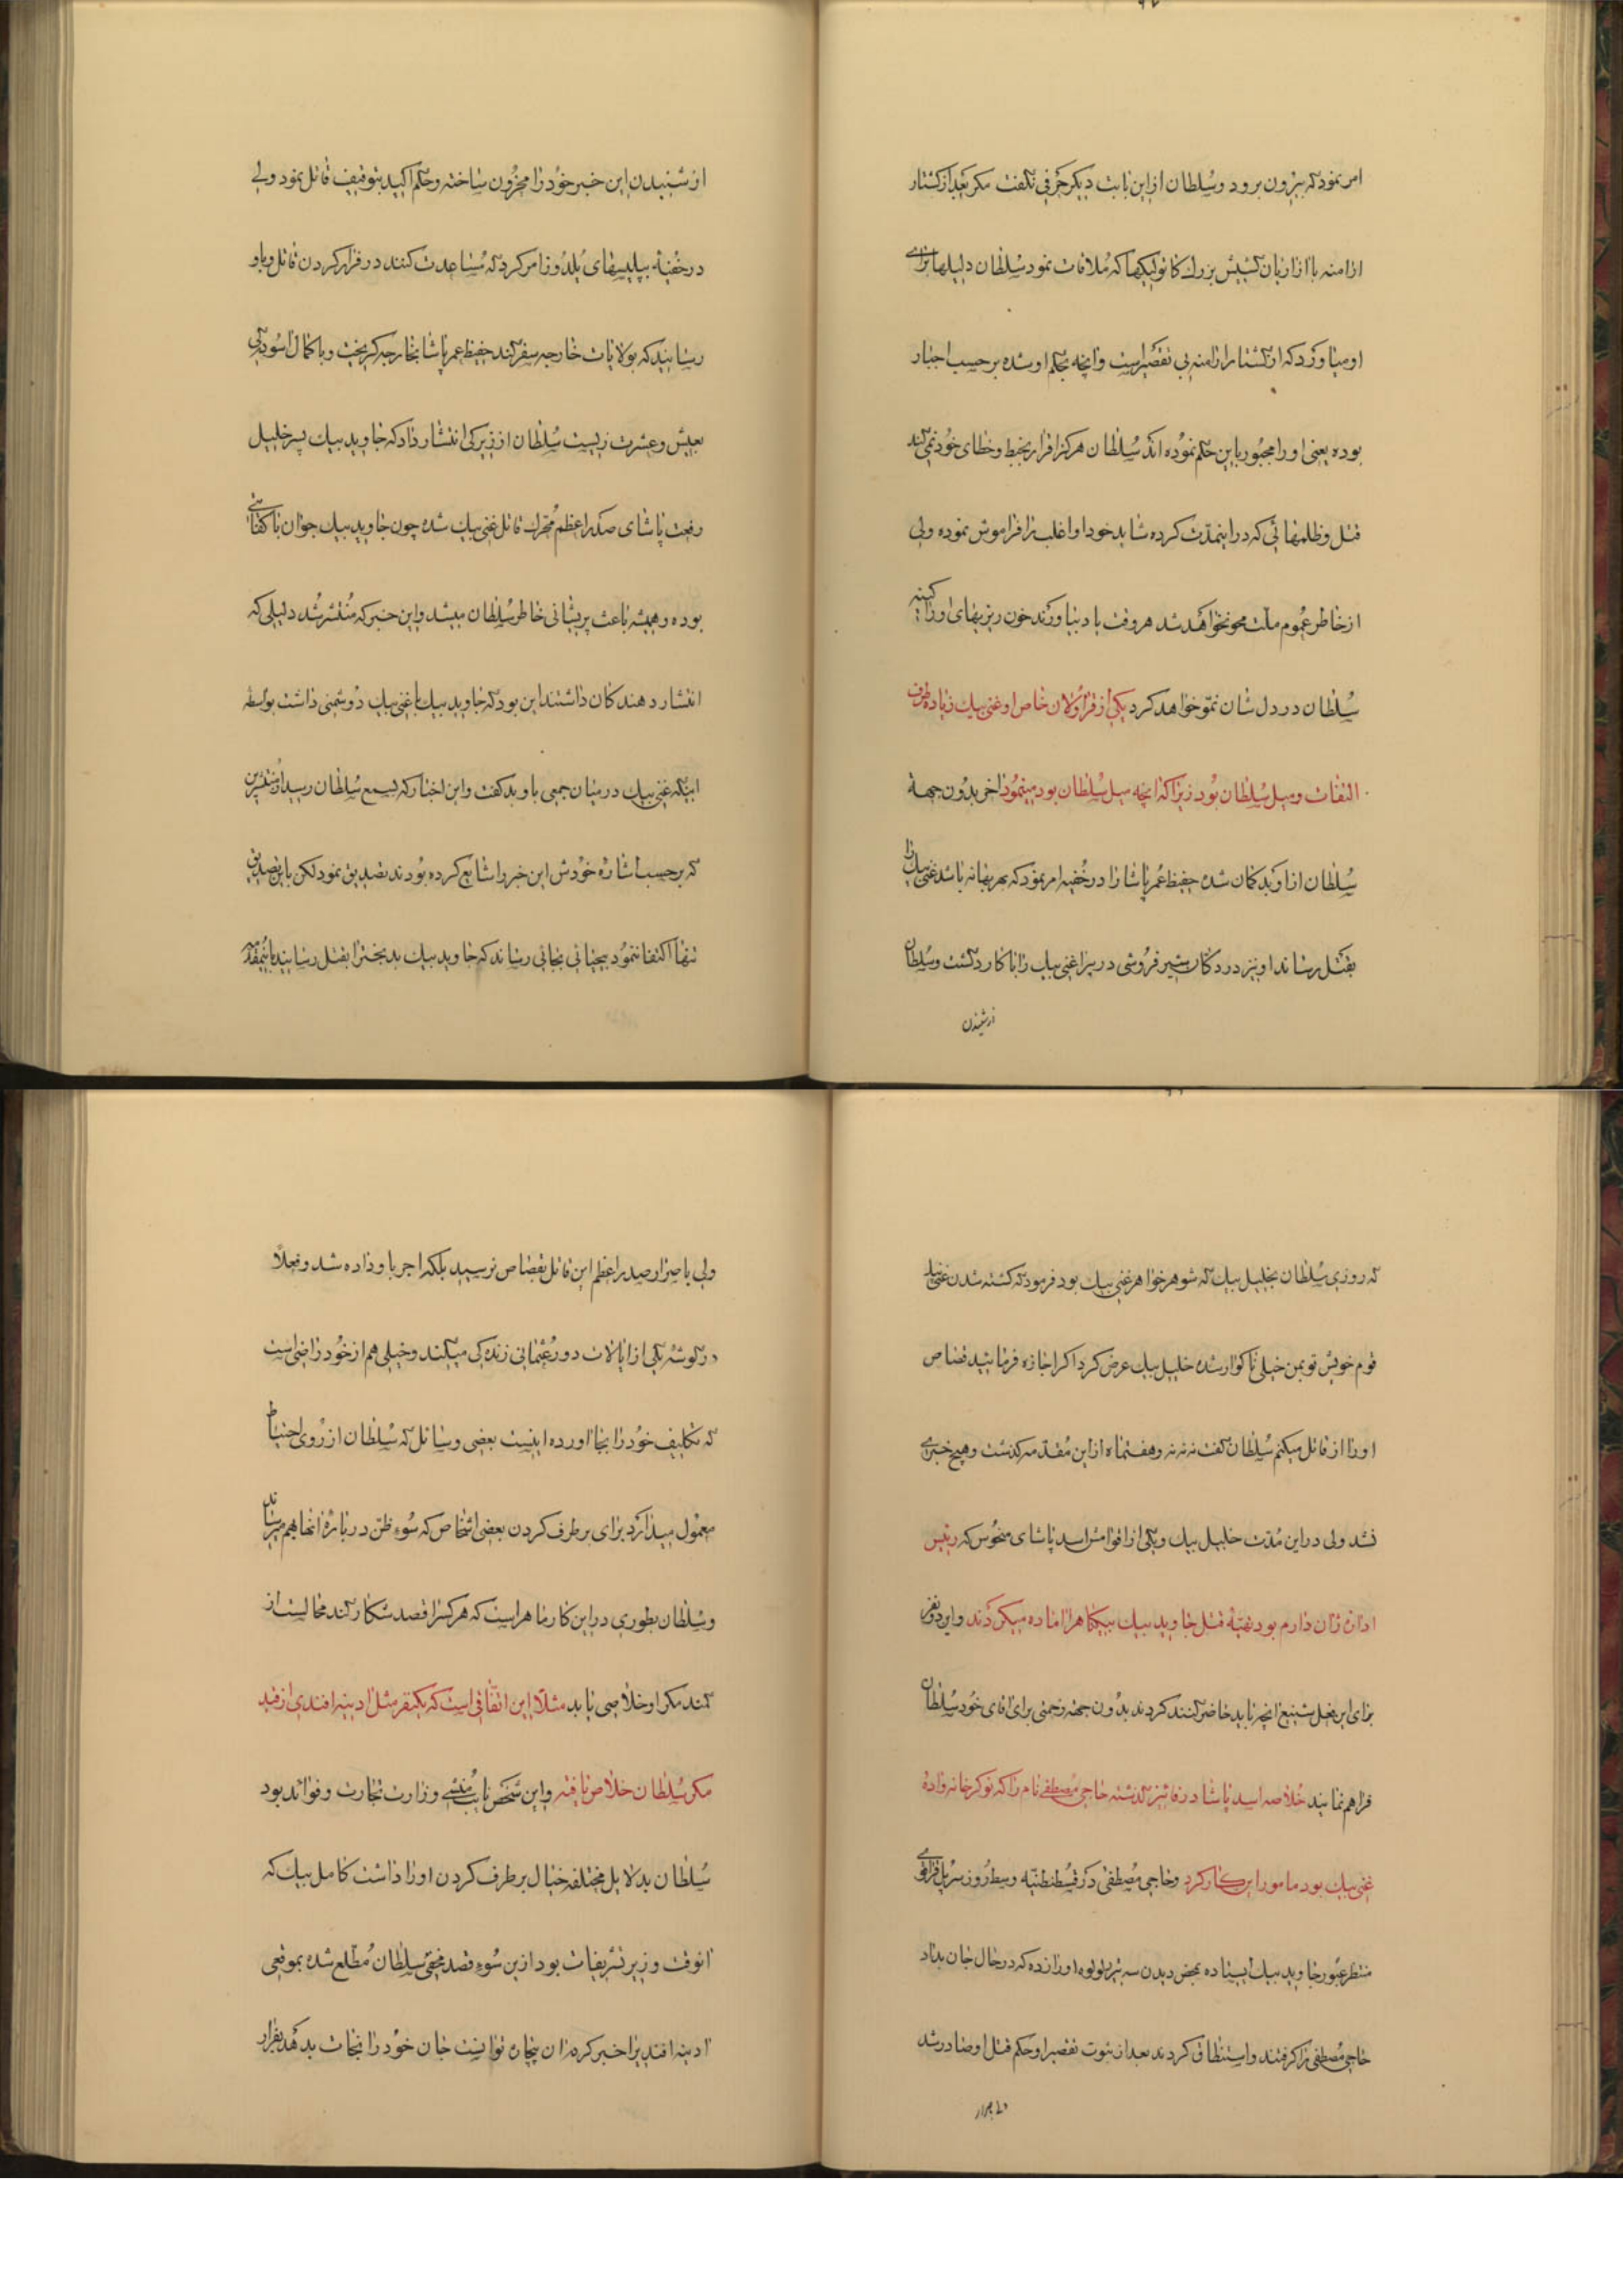 امر نمود که بیرون برود و سلطان از این بابت دیگر حرفی نگفت مگر بعد از کشتار
ارامنه با ازاریان کشیش بزرك کاتولیکها که ملاقات نمود سلطان دلیلها برای
او میاورد که از کشتار ارامنه بی تقصیر است و انچه بحکم او شده بر حسب اجبار
بوده یعنی او را مجبور باین حکم نموده اند سلطان هرگز اقرار بخبط و خطای خود نمی کند
قتل و ظلمهائی که در اینمدت کرده شاید خود او اغلب را فراموش نموده ولی
از خاطر عموم ملت محو نخواهد شد هر وقت یاد بیاورند خون ریزیهای او را کینه
سلطان در دل شان نمو خواهد کرد یکی از قراولان خاص او غنی بیك زیاده طرف
التفات و میل سلطان بود زیرا که انچه میل سلطان بود مینمود اخر بدون جهة
سلطان از او بد کمان شده حفیظ عمر پاشا را در خفیه امر نمود که بهر بهانه باشد غنی بیك را
بقتل رساند او نیز در دکان شیر فروشی در پرا غنی بیك را با کارد کشت و سلطان
از شنیدن
از شنیدن این خبر خود را محزون ساخته و حکم اکید بتوقیف قاتل نمود ولی
در خفیه بپلیسهای یلدوز امر کرد که مساعدت کنند در فرار کردن قاتل و باو
رسانید که بولایات خارجه سفر کند حفیظ عمر پاشا بخارجه گریخت و با کمال اسودگی
بعیش و عشرت زیست سلطان از زیرکی انتشار داد که جاوید بیك پسر خلیل
رفعت پاشای صدر اعظم محرك قاتل غنی بیك شده چون جاوید بیك جوان با کفایتی
بوده و همیشه باعث پریشانی خاطر سلطان میشد و این خبر که منتشر شد دلیلی که
انتشار دهندکان داشتند این بود که جاوید بیك با غنی بیك دوشمنی داشت بواسطه
اینکه غنی بیك در میان جمعی باو بد کفت و این اخبار که بسمع سلطان رسید از منتشرین
که بر حسب اشاره خودش این خبر را شایع کرده بودند تصدیق نمود لکن باین تصدیق
تنها اکتفا ننمود بیحیائی بجائی رساند که جاوید بیك بدبخت را بقتل رسانید باینمقدمه
که روزی سلطان بخلیل بیك که شوهر خواهر غنی بیك بود فرمود که کشته شدن غنی بیك
قوم خویش تو بمن خیلی ناکوار شده خلیل بیك عرض کرد اکر اجازه فرمائید قصاص
او را از قاتل میکنم سلطان کفت نه نه نه و هفتماه از این مقدمه گذشت و هیچ خبری
نشد ولی در این مدت خلیل بیك و یکی از اقوامش اسد پاشای منحوس که رئیس
اداره ژان دارم بود تهیه قتل جاوید بیك بیکناه را اماده میکردند و این دو نفر
برای این فعل شنیع انچه باید حاضر کنند کردند بدون جهة زحمتی برای اقای خود سلطان
فراهم نمایند خلاصه اسد پاشا در قائیز کذشته حاجی مصطفی نام را که نوکر خانه زاده
غنی بیك بود مامور این کار کرد و حاجی مصطفی در قسطنطنیه وسط روز سر پل قراکوی
منتظر عبور جاوید بیك ایستاده بمحض دیدن سه تیر رولوه او را زده که در حال جان بداد
حاجی مصطفی را کرفتند و استنطاق کردند بعد از ثبوت تقصیر او حکم قتل او صادر شد
ولی باصرار
ولی باصرار صدر اعظم این قاتل بقصاص نرسید بلکه اجر باو داده شد و فعلا
در گوشه یکی از ایالات دور عثمانی زنده کی میکند و خیلی هم از خود راضی است
که تکلیف خود را بجا اورده اینست بعضی وسائل که سلطان از روی احتیاط
معمول میدارد برای بر طرف کردن بعضی اشخاص که سوء ظن در باره انها بهم میرساند
و سلطان بطوری در این کار ماهر است که هر کس را قصد شکار کند محالست از
کمند مکر او خلاصی یابد مثلا این اتفاقی است که یکنفر مثل ادینه افندی از قید
مکر سلطان خلاص یافته و این شخص نایب منشی وزارت تجارت و فوائد بود
سلطان بدلایل مختلفه خیال بر طرف کردن او را داشت کامل بیك که
انوقت وزیر تشریفات بود از ین سوء قصد مخفی سلطان مطلع شده بموقعی
ادینه افندیرا خبر کرده ان بیچاره توانست جان خود را نجات بدهد بفرار